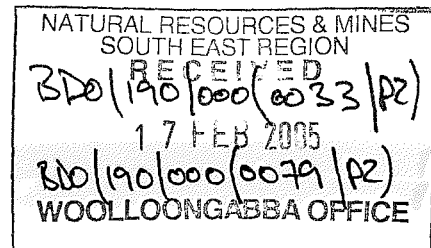 NATURAL RESOURCES & MINES
SOUTH EAST REGION
RECEIVED
BDO/190/000(0033/P2)
17 FEB 2005
BDO/190/000(0079/P2)
WOOLLOONGABBA OFFICE